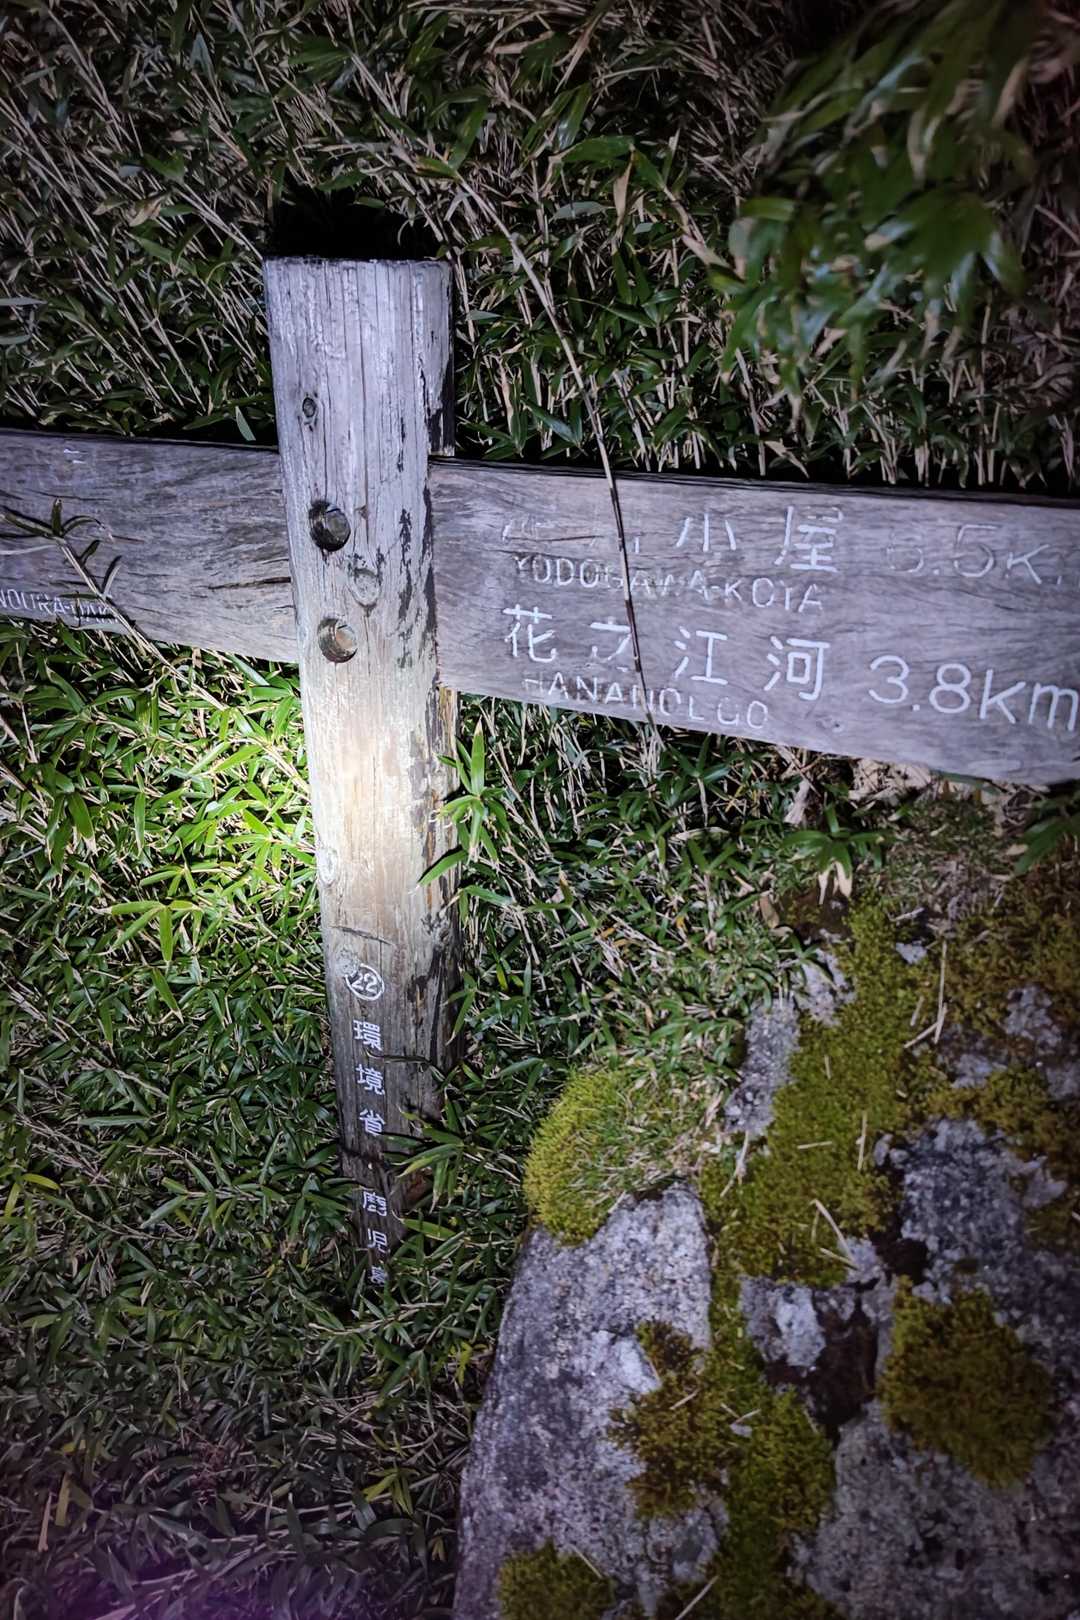 NOURA-DAK
小屋 6.5K
YODOGAWA-KOYA
花之江河 3.8km
HANANOEGO
22
環境省
鹿児島